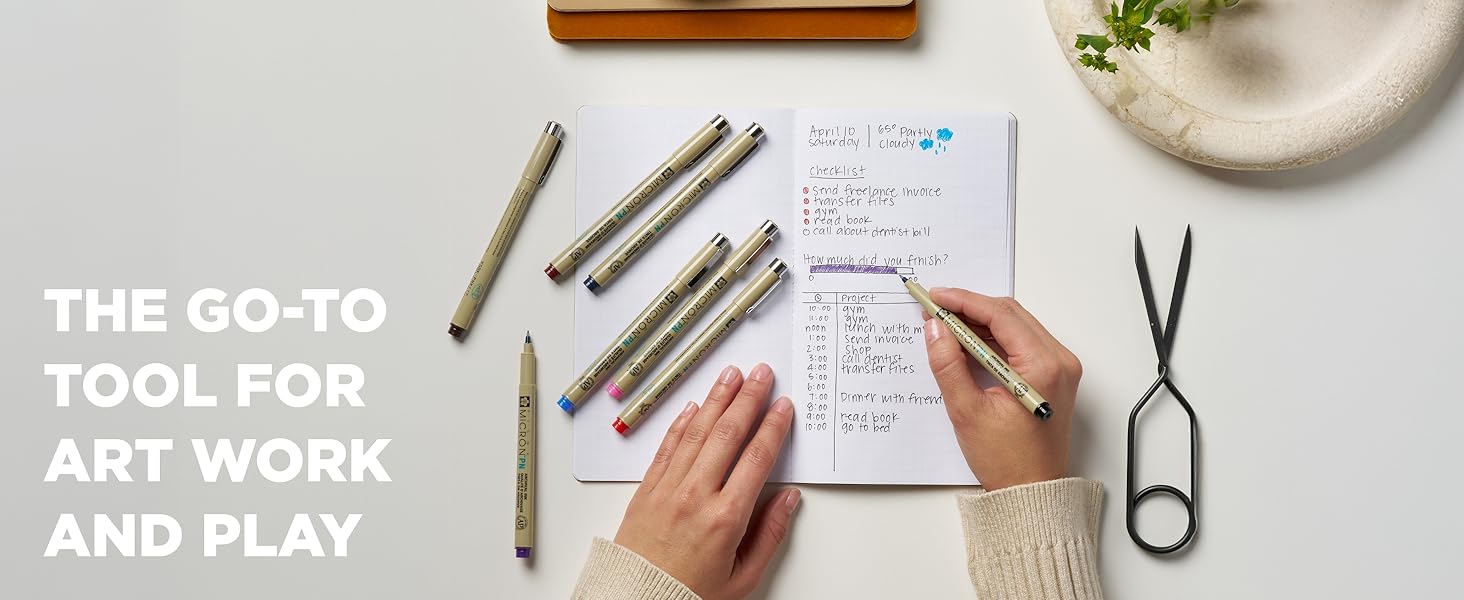 THE GO-TO
TOOL FOR
ART WORK
AND PLAY
April 10
saturday
65° Partly
cloudy
checklist
send freelance invoice
transfer files
gym
read book
call about dentist bill
How much did you finish?
0
Project
10:00 gym
11:00 gym
noon lunch with
1:00 send invoice
2:00 shop
3:00 call dentist
4:00 transfer files
5:00
6:00
7:00 Dinner with friend
8:00
9:00 read book
10:00 go to bed
MICRON PN
MICRON PN
MICRON PN
MICRON PN
MICRON
MICRON PN
MICRON PN